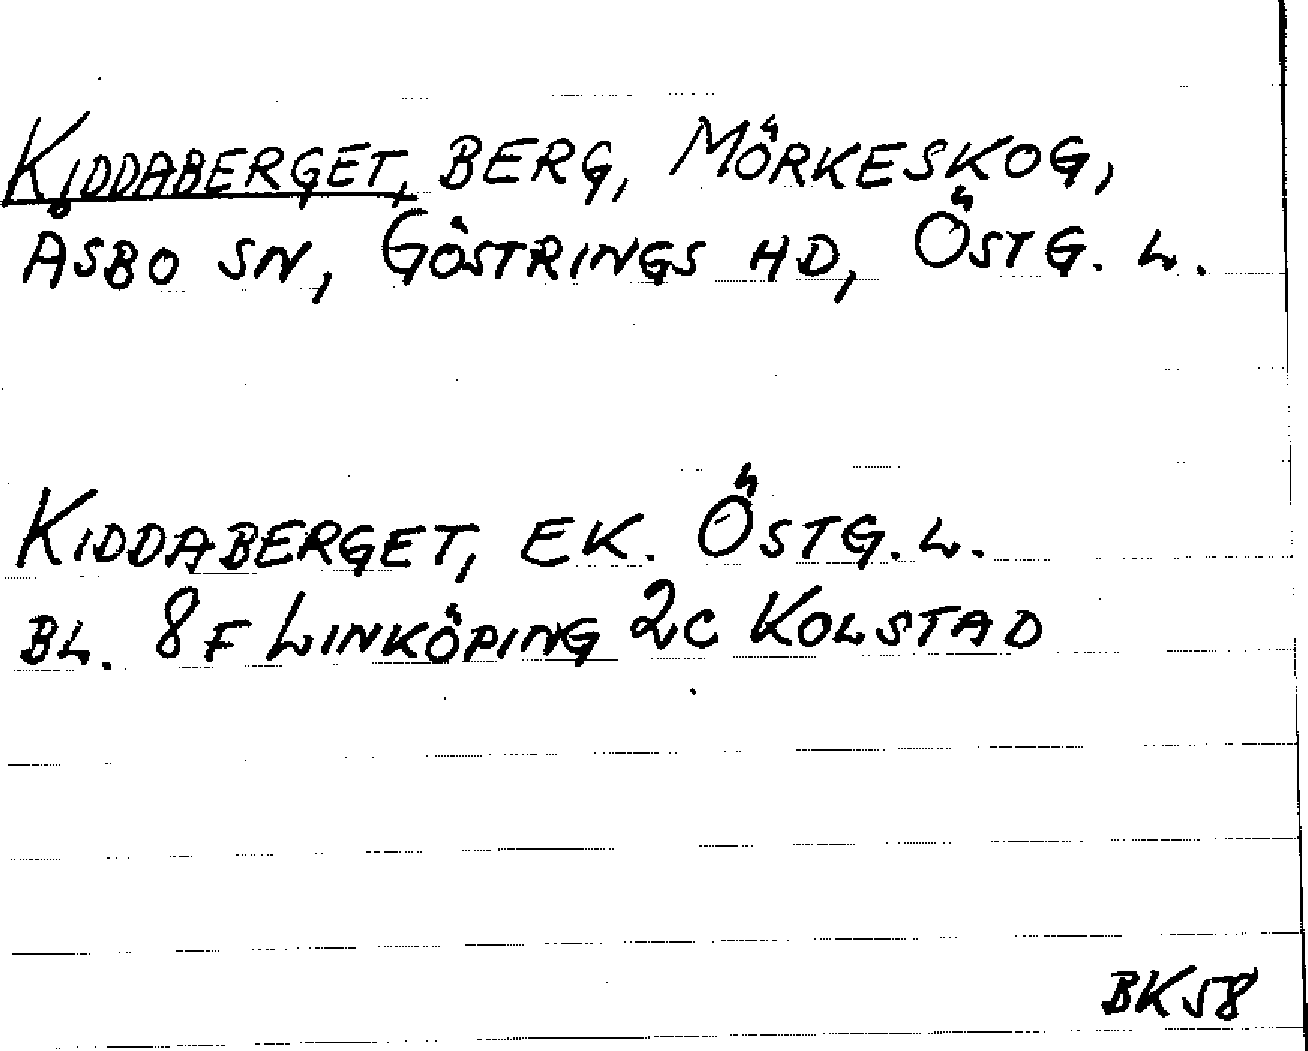 KIDDABERGET, BERG, MÖRKESKOG,
ÅSBO SN, GÖSTRINGS HD, ÖSTG. L.
KIDDABERGET, EK. ÖSTG. L.
BL. 8F LINKÖPING 2C KOLSTAD
BK58